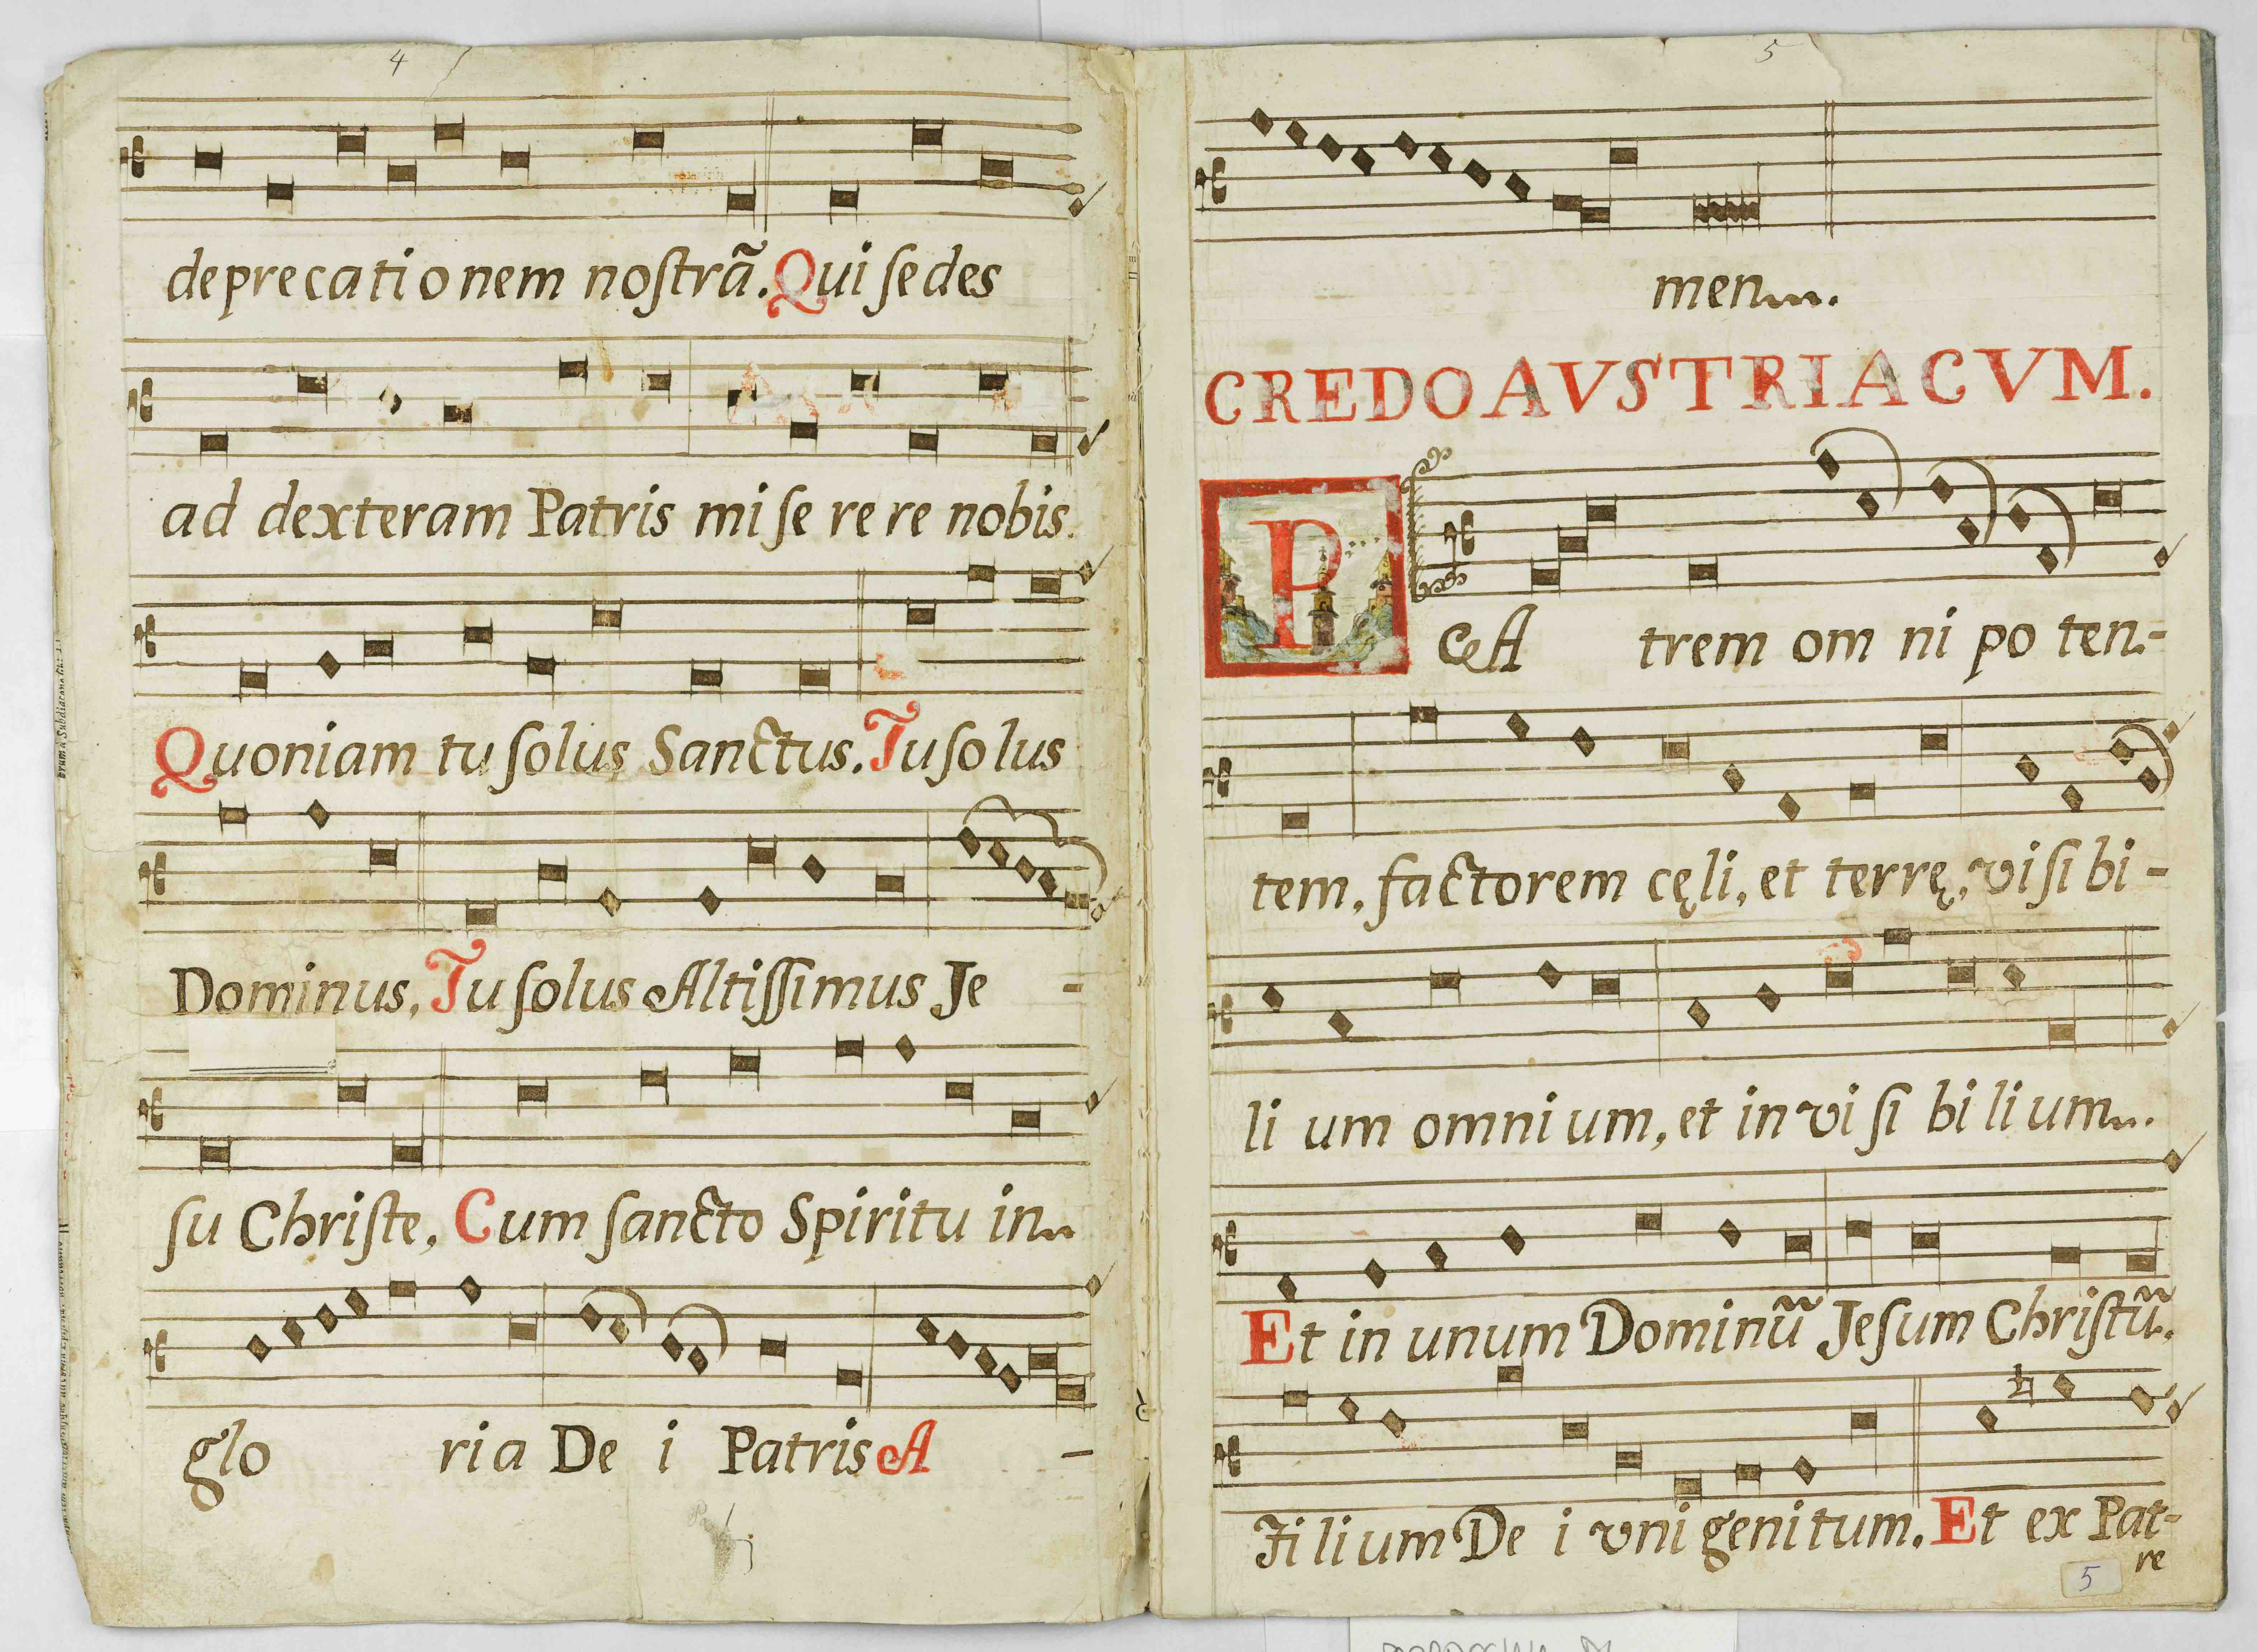 4
deprecationem noſtrã. Qui ſedes
ad dexteram Patris miſerere nobis.
Quoniam tu ſolus Sanctus. Tu ſolus
Dominus, Tu ſolus Altiſſimus Je -
ſu Chriſte, Cum ſancto Spiritu in
glo ria De i Patris A -
5
men.
CREDO AVSTRIACVM.
PA trem om ni po ten-
tem, factorem cęli, et terrę, viſibi-
li um omnium, et inviſi bilium.
Et in unum Dominũ Jeſum Chriſtũ.
Filium De i vnigenitum. Et ex Pat-
re
5